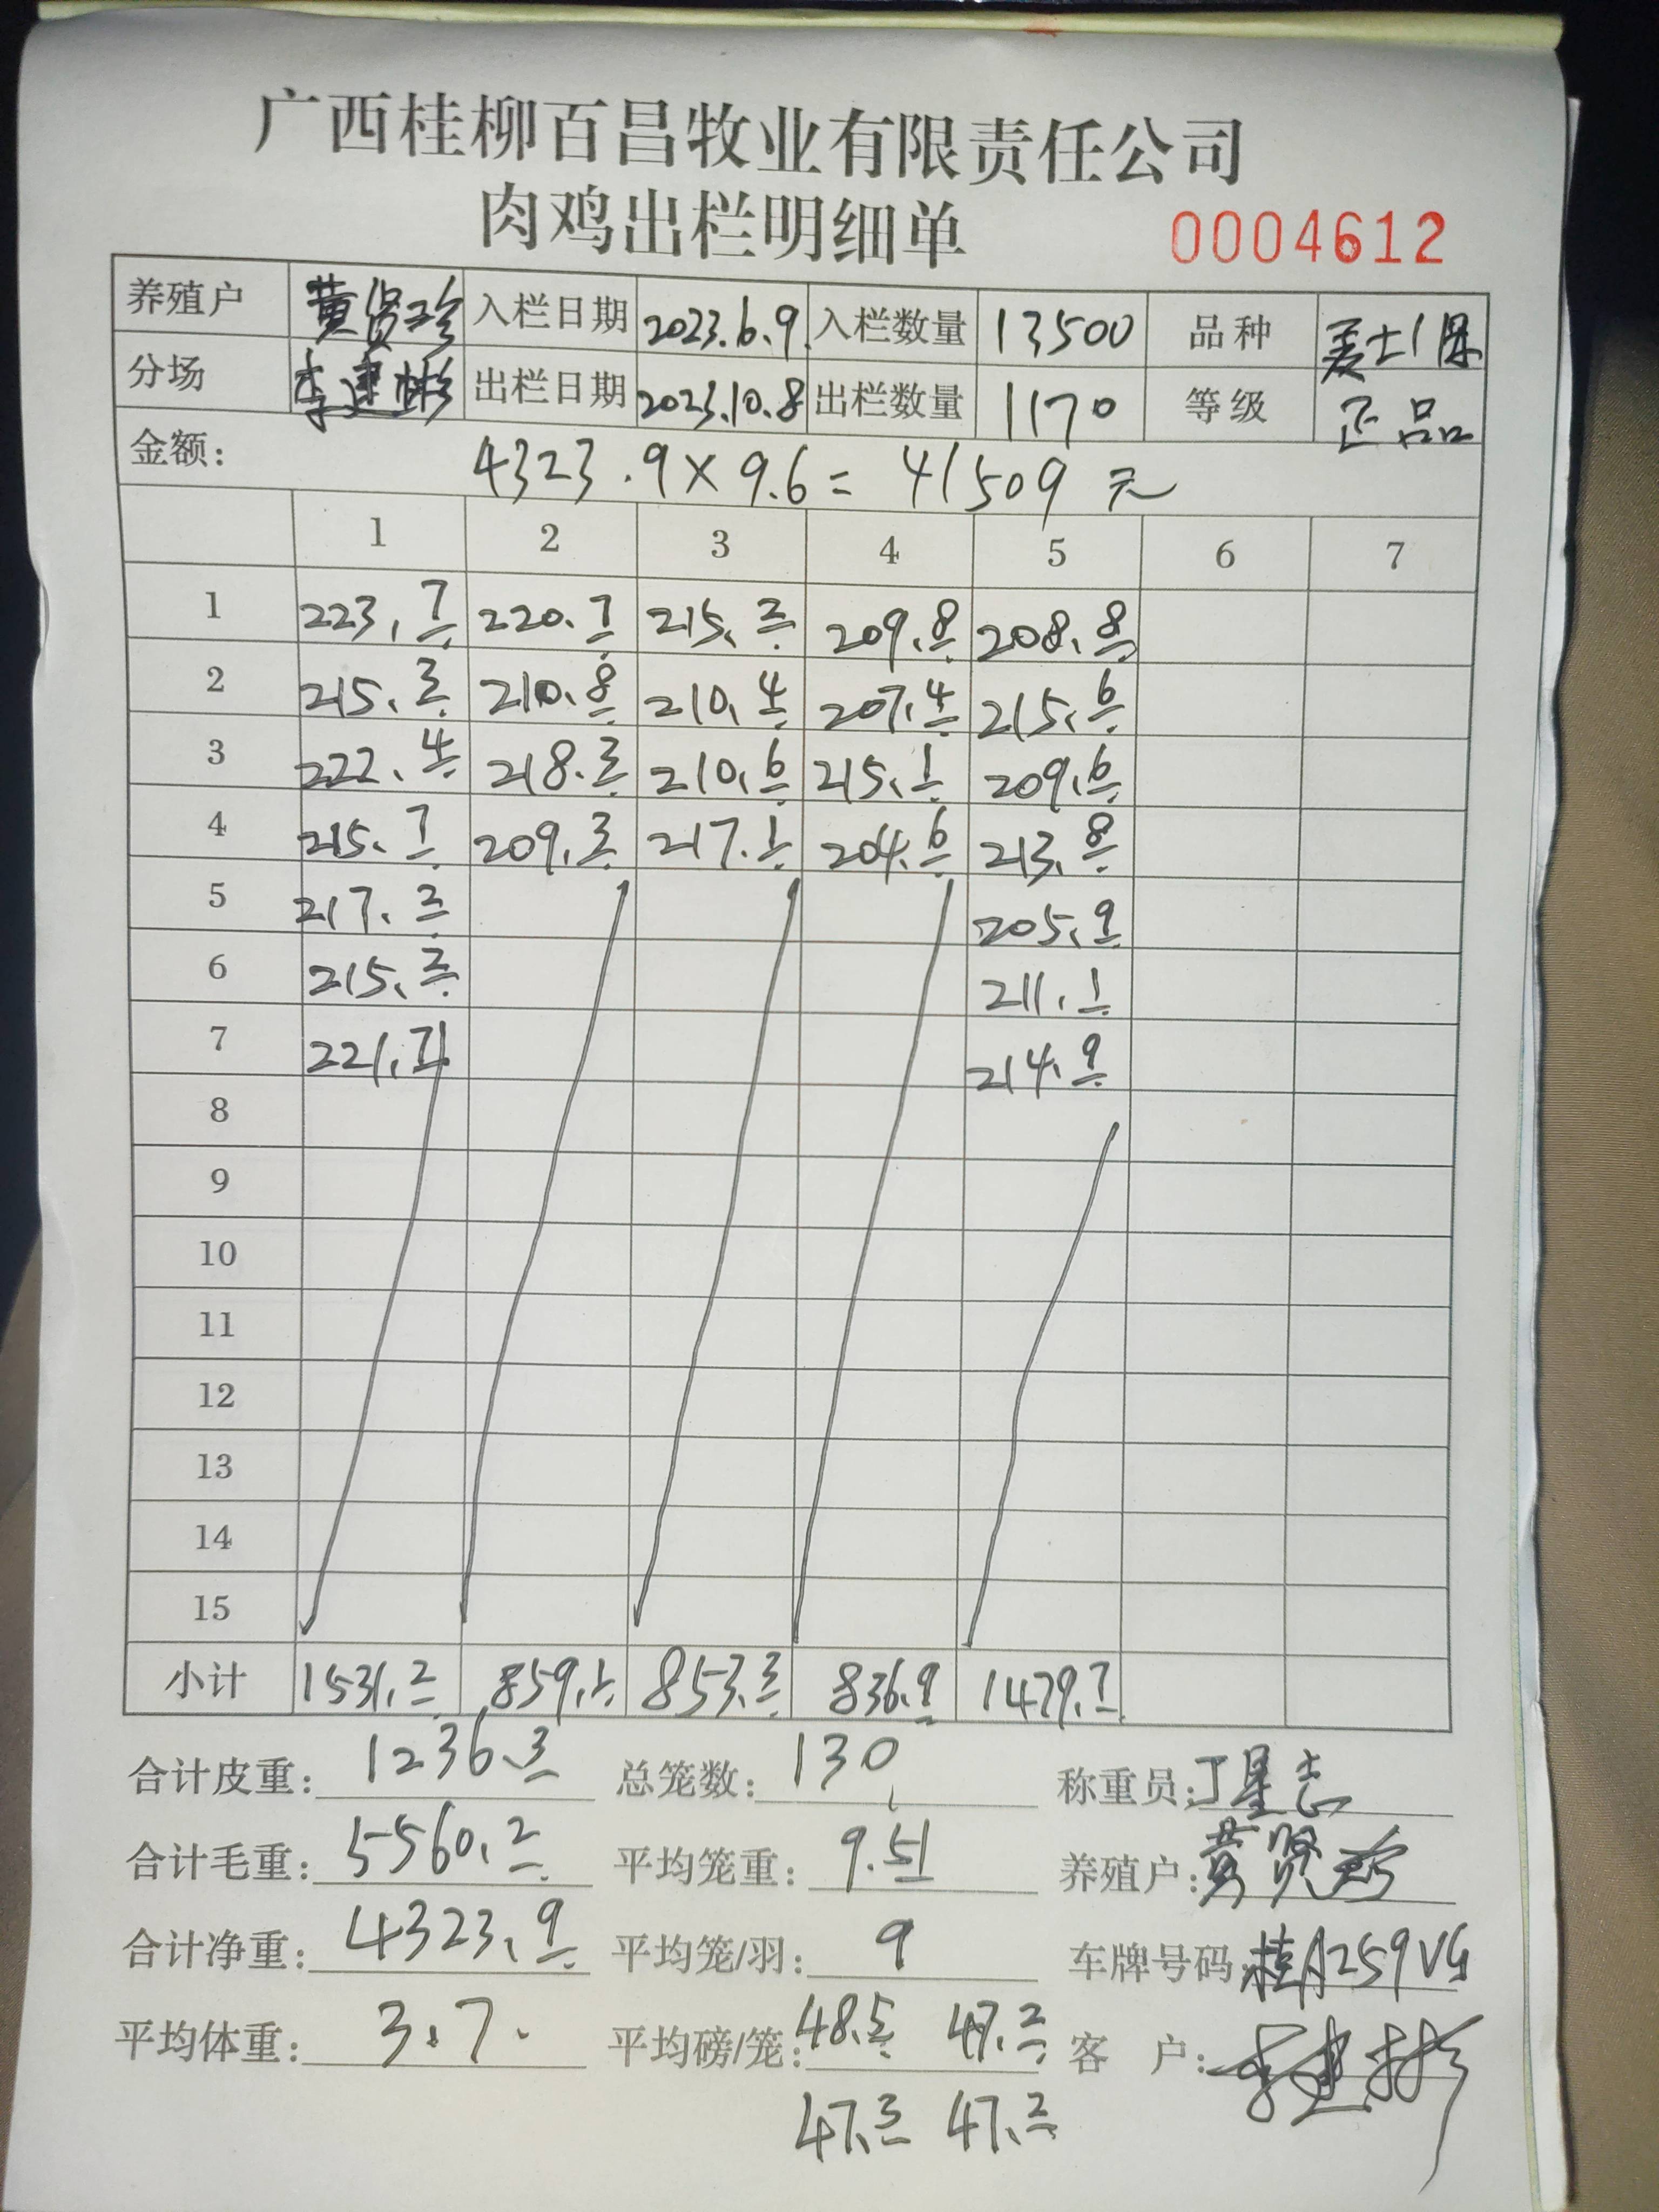 广西桂柳百昌牧业有限责任公司
肉鸡出栏明细单 0004612
养殖户 黄贤珍 入栏日期 2023.6.9. 入栏数量 13500 品种
分场 李建彬 出栏日期 2023.10.8 出栏数量 1170 等级 正品
金额: 4323.9×9.6=41509元
1 2 3 4 5 6 7
1 223.7 220.7 215.2 209.8 208.8
2 215.3 210.8 210.4 207.4 215.6
3 222.4 218.3 210.6 215.1 209.6
4 215.7 209.3 217.1 204.6 213.8
5 217.2 205.9
6 215.2 211.1
7 221.7 214.9
8
9
10
11
12
13
14
15
小计 1531.2 859.1 853.3 836.9 1479.7
合计皮重: 1236.3 总笼数: 130 称重员: 丁星志
合计毛重: 5560.2 平均笼重: 9.51 养殖户: 黄贤珍
合计净重: 4323.9 平均笼/羽: 9 车牌号码: 桂A259VG
平均体重: 3.7. 平均磅/笼: 48.5 47.2 客 户: 李建彬
47.3 47.2